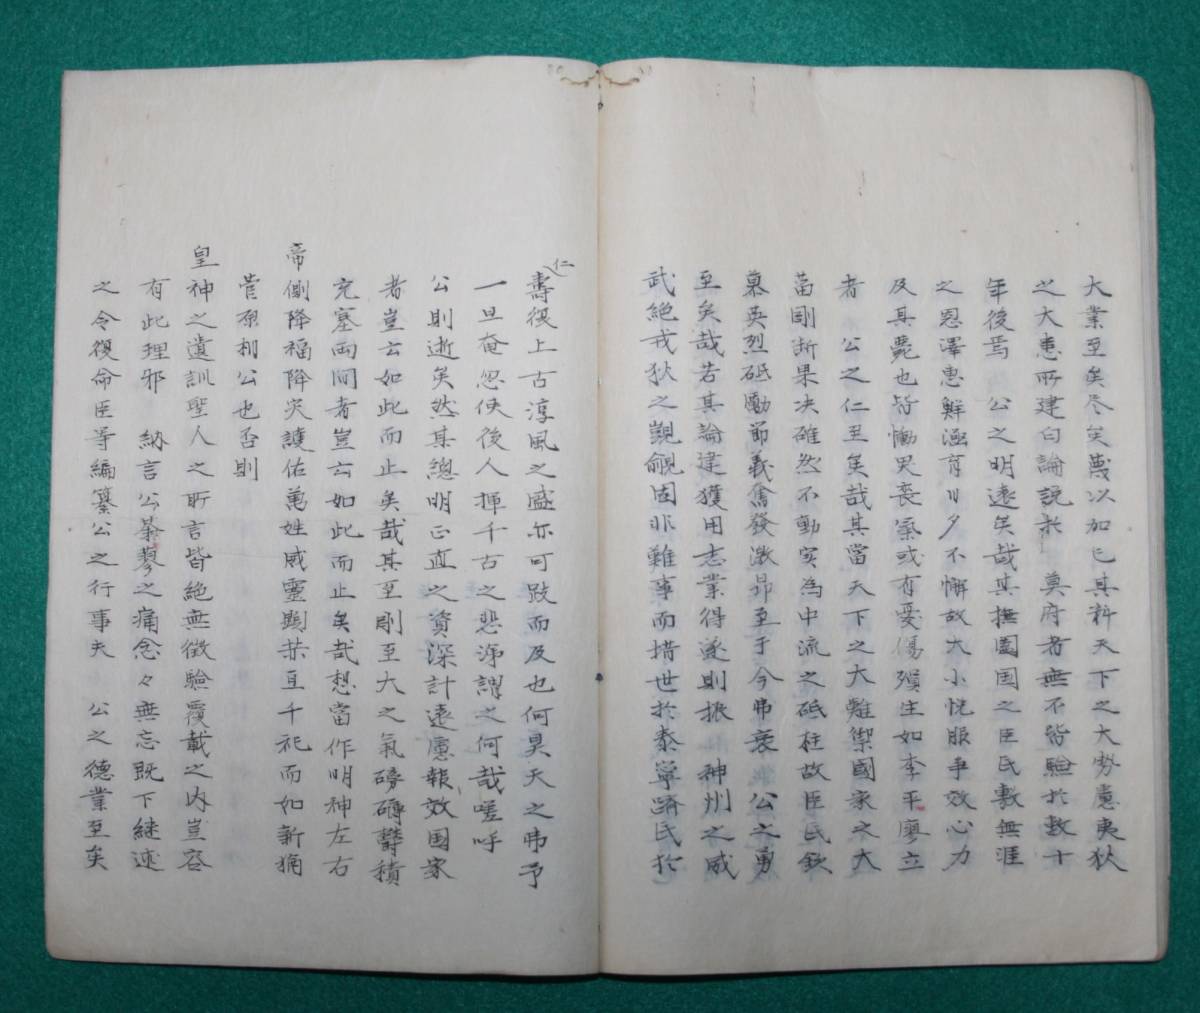 大業至矣尽矣蔑以加已其料天下之大势慮夷狄
之大患所建白論説於 莫府者無不皆驗於数十
年後焉 公之明遠矣哉其撫圖国之臣民敷無涯
之恩澤惠鮮涵育日夕不懈故大小悦服争效心力
及其薨也皆慟哭喪氣或有憂傷殞生如李平廖立
者 公之仁至矣哉其當天下之大難禦國家之大
菑剛断果决確然不動实為中流之砥柱故臣民欽
慕英烈砥勵節義奮發激昂至于今弗衰 公之勇
至矣哉若其論建獲用志業得遂則振 神州之威
武絶戎狄之覬覦固非難事而措世於泰寧躋民於
仁壽復上古淳風之盛亦可跂而及也何昊天之弗予
一旦奄忽使後人揮千古之悲涕謂之何哉嗟呼
公則逝矣然其總明正直之資深計遠慮報效国家
者豈云如此而止矣哉其至剛至大之氣磅礴欝積
充塞両間者豈云如此而止矣哉想當作明神左右
帝側降福降災護佑萬姓威靈顕栄亘千祀而如新猶
菅原利公也否則
皇神之遺訓聖人之所言皆絶無徴驗覆載之内豈容
有此理邪 納言公蓼之痛念々無忘既下継述
之令復命臣等編纂公之行事夫 公之德業至矣